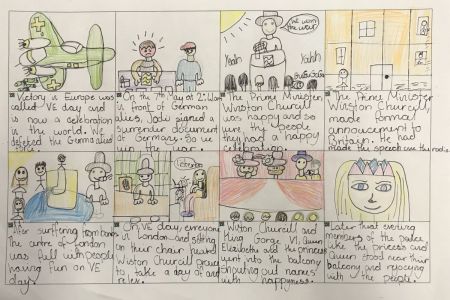 We won the war
Yeah Yeahh
Victory in Europe was
called VE day and
is now a celebration
in the world. We
defeted the Germa alies
On the 7th May at 2:41am
in front of German
alies, Jodl signed a
Surrender document
at Germany. So we
win the war.
The Prime Minister
Winston Churcill
was happy and so
were the people
they had a happy
celebration.
The Prime Minister
Winston Churcill
made formal
announcement to
Britain. He had
made the speech on the radio.
After suffering from bombs
the centre of London
was full with people
having fun on VE
day.
On VE day, evreyone
in London and sitting
on their chair heard
Wiston Churcill
to take a day of and
relax.
Wiston Churcill and
King George VI, Queen
Elizabeth and the princess
went into the balcony
shouting out names
with happyness.
Later that evening
members of the palace
like the princess and
Queen stood near their
balcony and rejoycing
with the people.